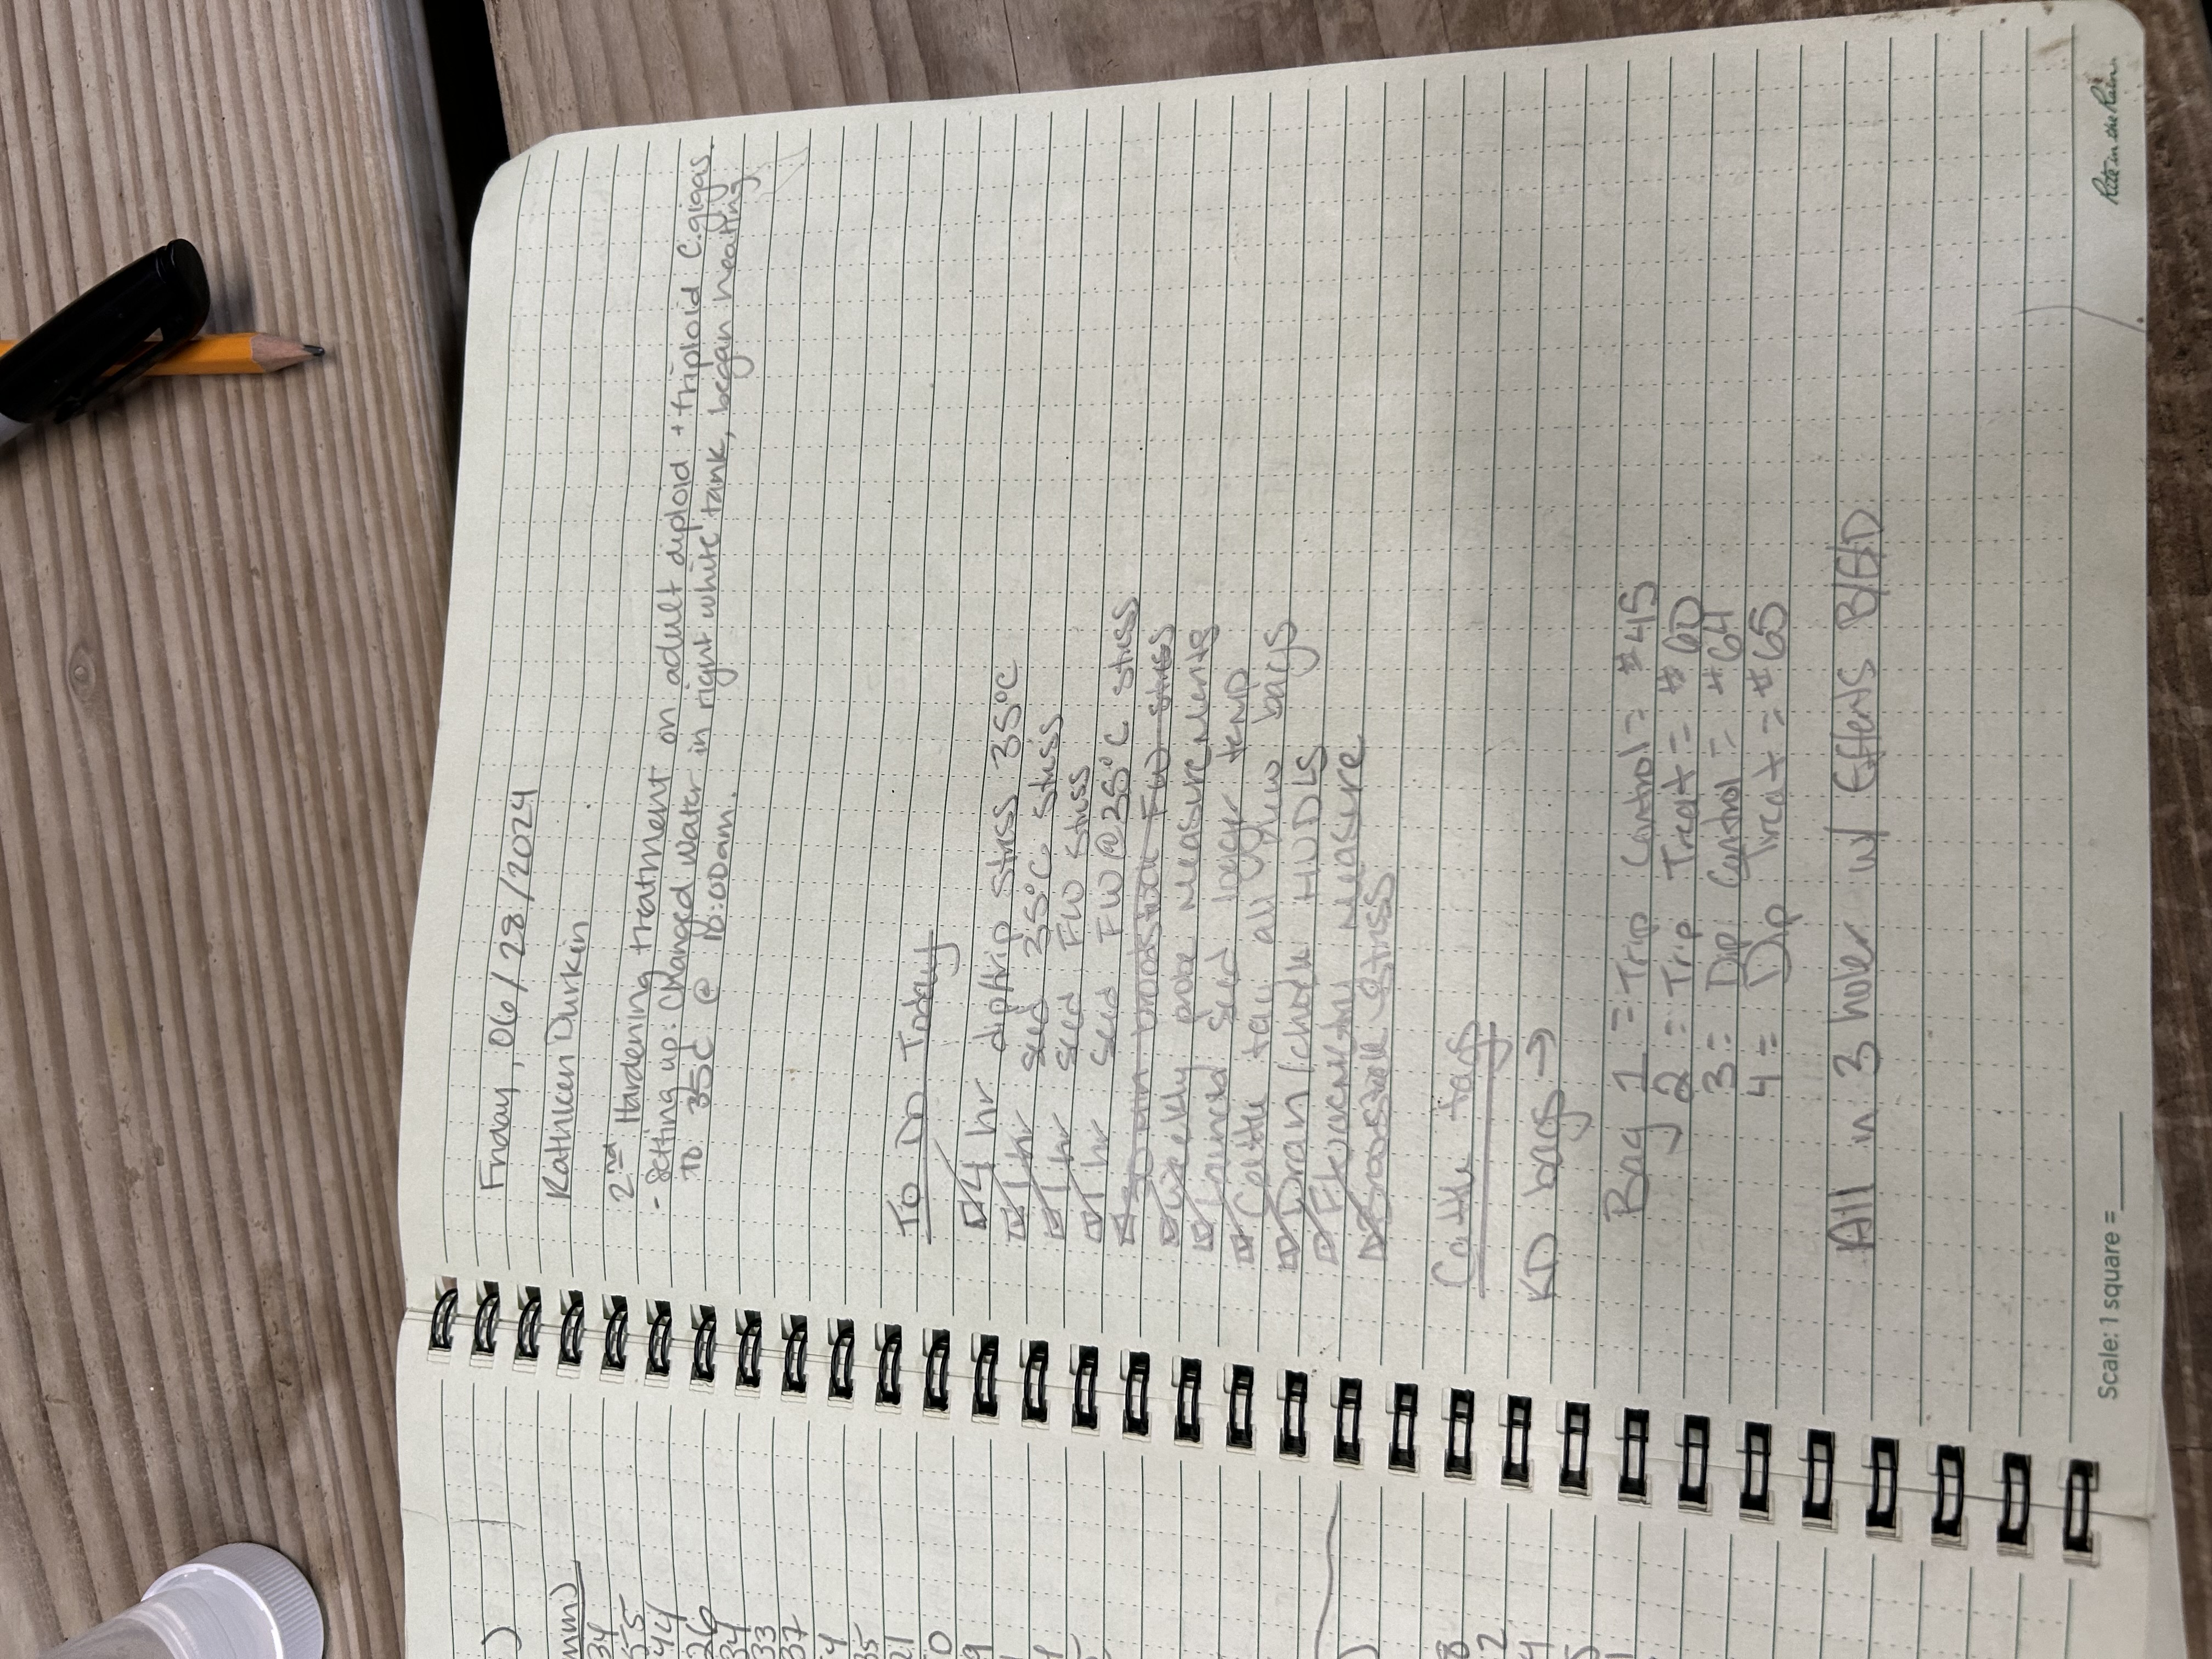 )
mm)
34
55
44
26
34
33
37
4
35
21
0
9
8
2
4
Friday, 06/28/2024
Kathleen Durkin
2nd Hardening treatment on adult diploid + triploid C.gigas.
- Setting up: Changed water in right white tank, began heating
to 35C @ 10:00am.
To Do Today
4 hr dip/trip stress 35°C
1 hr seed 35°C stress
1 hr seed FW stress
1 hr seed FW @ 35°C stress
30 min broodstock FW stress
Weekly probe measurements
Launch seed logger temp
Cattle tag all new bags
Drain/check HUDLS
measure
Broodstock stress
Cattle tags
KD bags →
Bag 1 = Trip Control = #45
2 = Trip Treat = #60
3 = Dip Control = #64
4 = Dip Treat = #65
All in 3 holer w/ B/E/D
Scale: 1 square =
Rite in the Rain